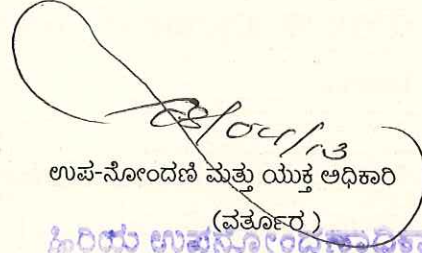 /04/13
ಉಪ-ನೋಂದಣಿ ಮತ್ತು ಯುಕ್ತ ಅಧಿಕಾರಿ
(ವರ್ತೂರ )
ಹಿರಿಯ ಉಪನೋಂದಣಾಧಿಕಾ